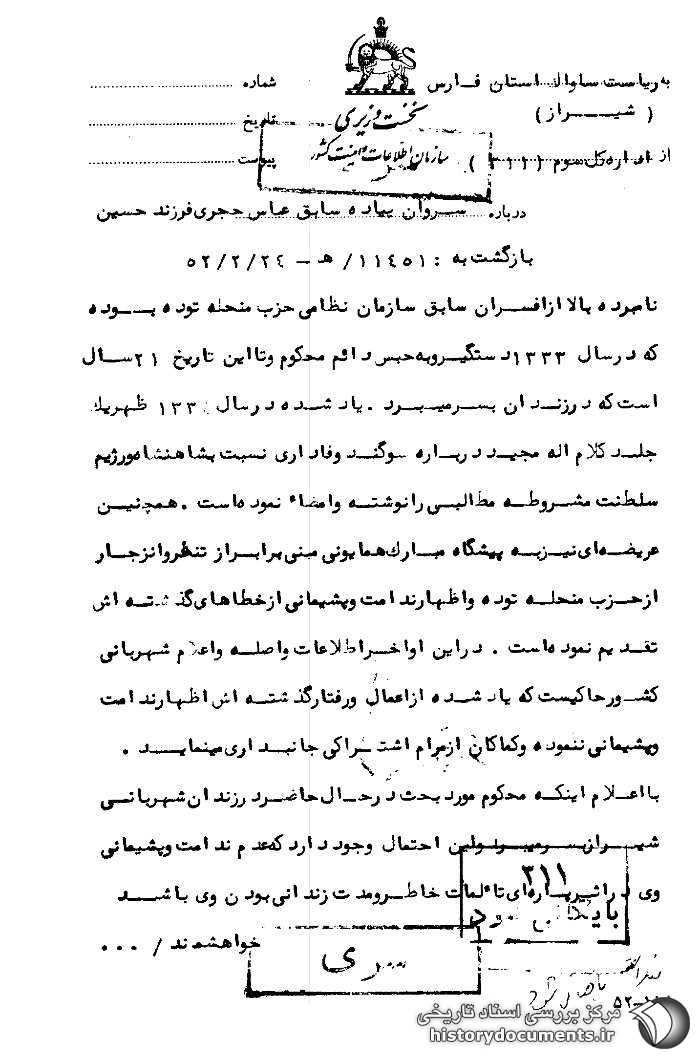 به ریاست ساواک استان فارس
( شیراز )
از اداره کل سوم ( ۳۱۱ )
نخست وزیری
سازمان اطلاعات و امنیت کشور
سری
شماره
تاریخ
پیوست
درباره سروان پیاده سابق عباس حجری فرزند حسین
بازگشت به : ۱۱۴۵۱/ هـ - ۵۲/۲/۲۴
نامبرده بالا از افسران سابق سازمان نظامی حزب منحله توده بوده
که در سال ۱۳۳۳ دستگیر و به حبس دائم محکوم و تا این تاریخ ۲۱ سال
است که در زندان بسر میبرد . یاد شده در سال ظهر یک
جلد کلام اله مجید درباره سوگند وفاداری نسبت بشاهنشاه و رژیم
سلطنت مشروطه مطالبی را نوشته و امضاء نموده است . همچنین
عریضه ای نیز به پیشگاه مبارک همایونی مبنی بر ابراز تنفر و انزجار
از حزب منحله توده و اظهار ندامت و پشیمانی از خطاهای گذشته اش
تقدیم نموده است . در این اواخر اطلاعات واصله و اعلام شهربانی
کشور حاکیست که یاد شده از اعمال و رفتار گذشته اش اظهار ندامت
و پشیمانی ننموده و کماکان از مرام اشتراکی جانبداری مینماید .
با اعلام اینکه محکوم مورد بحث در حال حاضر در زندان شهربانی
شیراز بسر میبرد ولین احتمال وجود دارد که عدم ندامت و پشیمانی
وی در اثر پاره ای تألمات خاطر و مدت زندانی بودن وی باشد
خواهشمند / ...
۳۱۱
بایگانی شود
سری
مرکز بررسی اسناد تاریخی
historydocuments.ir